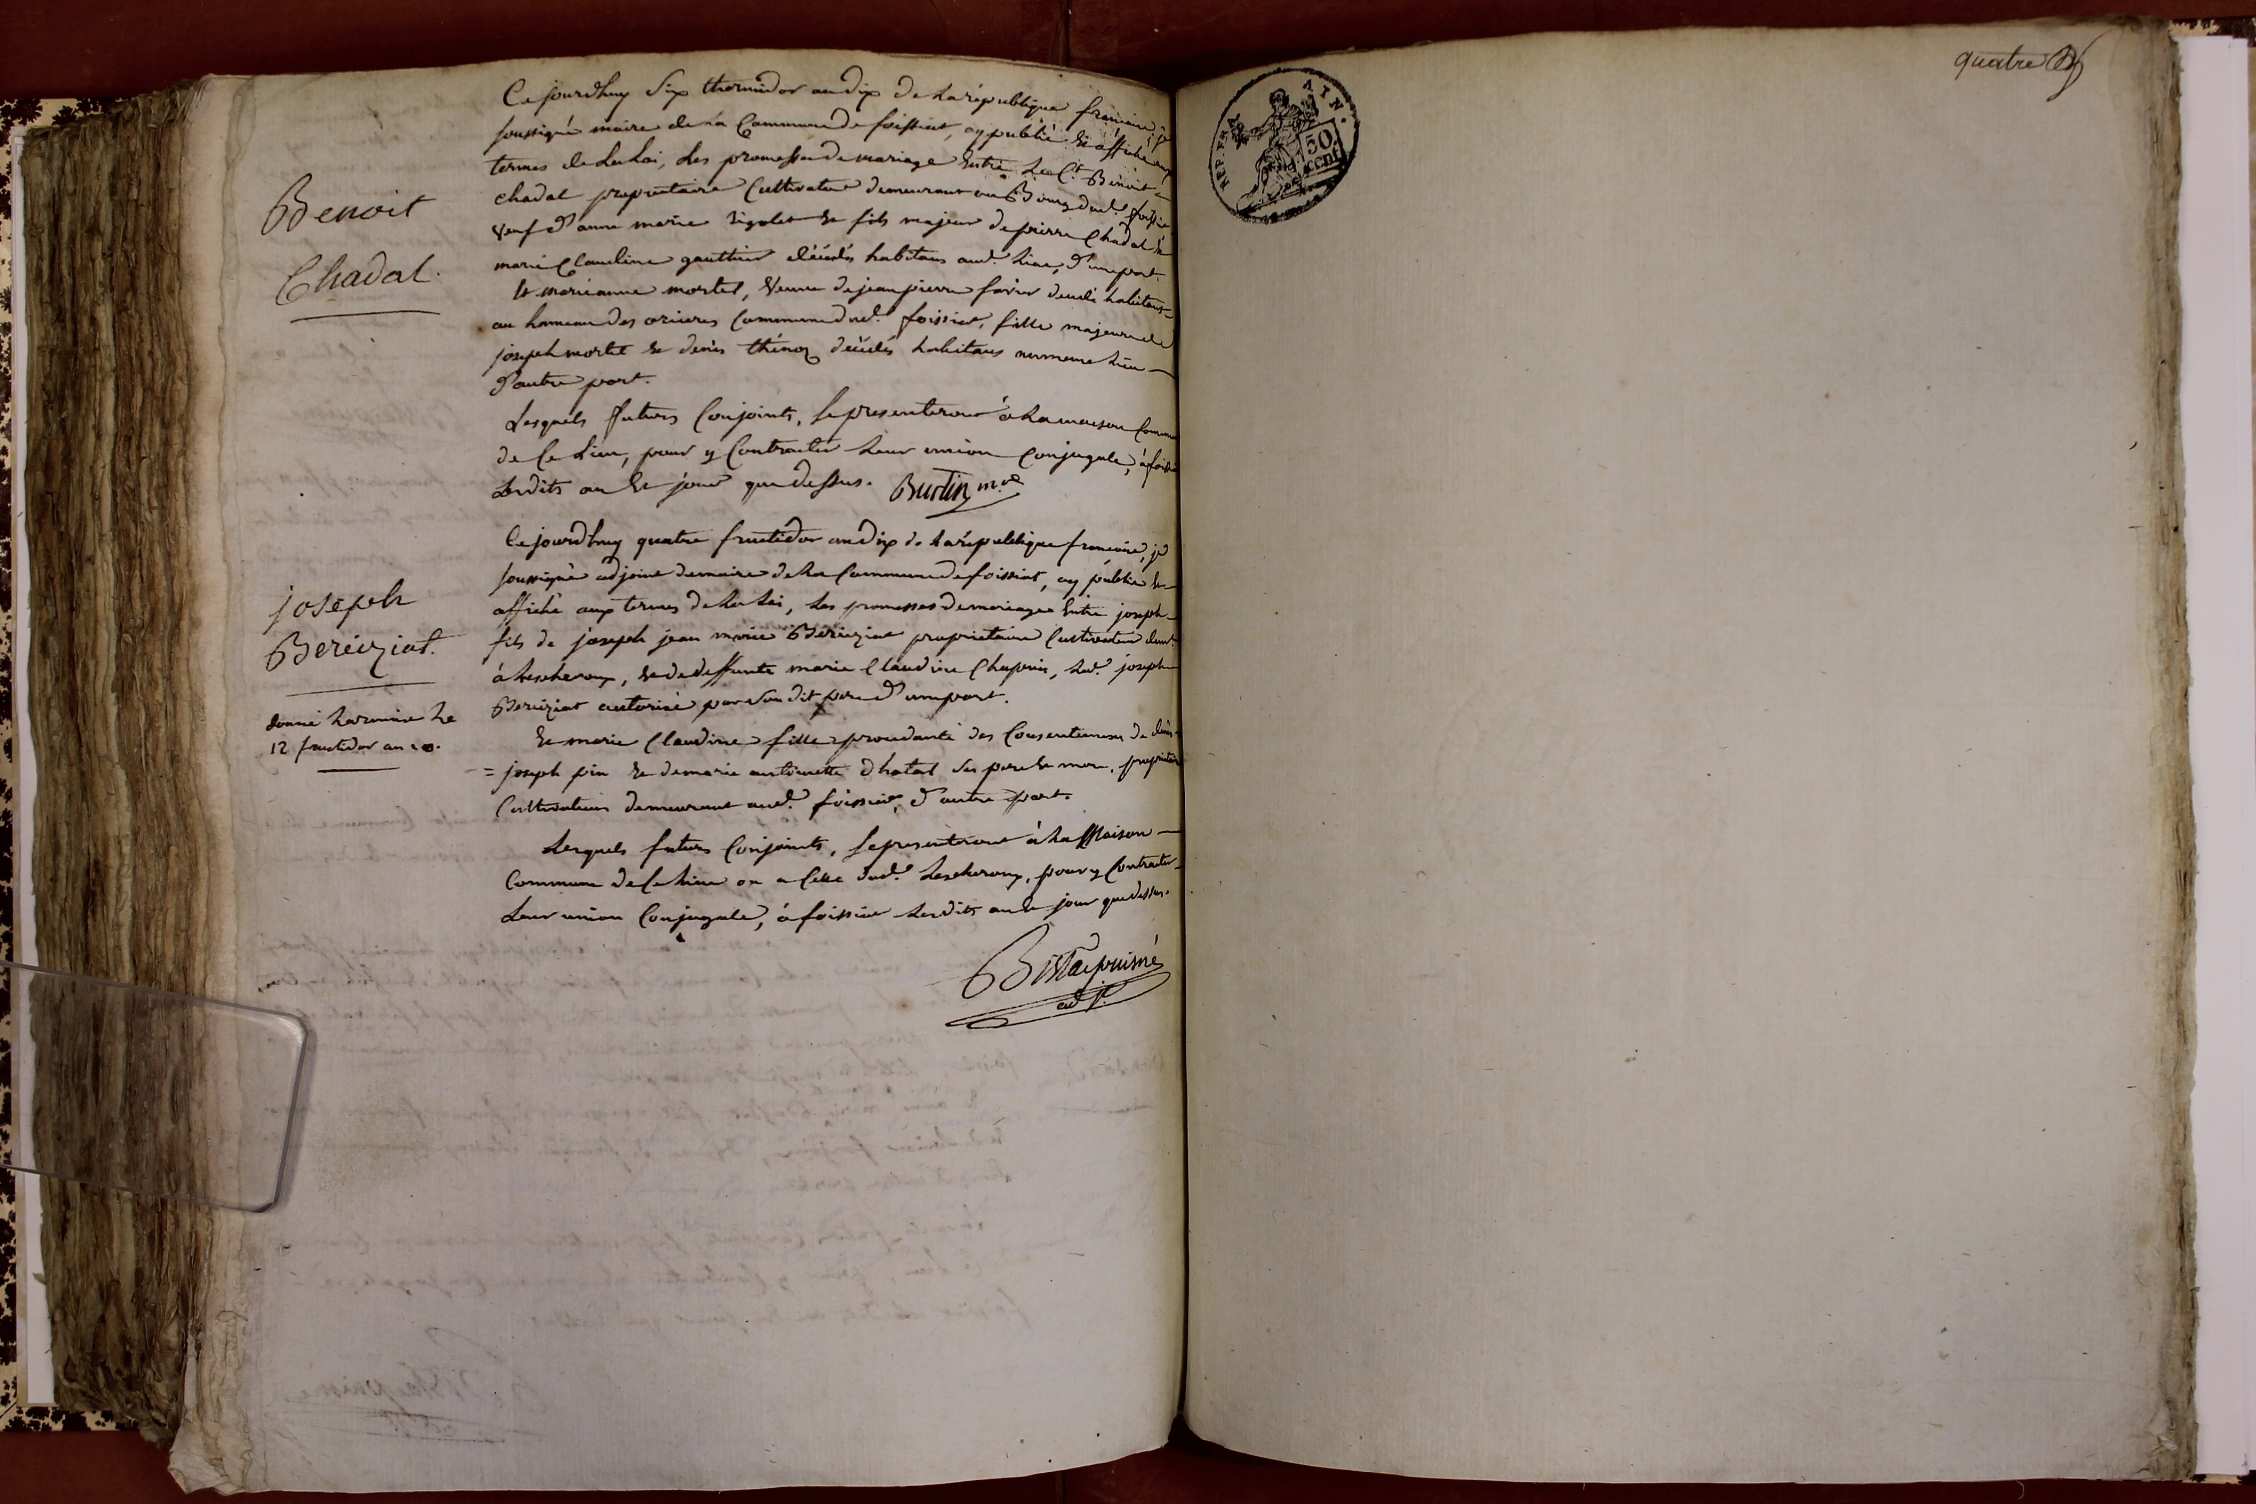 Ce jourdhuy six thermidor an dix de la république francaise, je
soussigné maire de la Commune de foissiat, ay publié et affiché aux
termes de la Loi, les promesses de mariage Entre Le Ct. Benoit
Chadal propriétaire Cultivateur demeurant au Bourg dud. foissia
Veuf d'anne marie rigolet et fils majeur de pierre Chadal &
marie Claudine gauthier décédés habitans aud. Lieu, d'une part.
Et marianne mortel, Veuve de jean pierre favier décédé habitans
au hameau des orcieres Commune dud. foissiat, fille majeure de
joseph mortel et denise thenoz décédés habitans au meme Lieu
d'autre part.
Lesquels futurs Conjoints, se presenteront à la maison Commune
de Ce Lieu, pour y Contracter Leur union Conjugale, à foissia
Lesdits an Et jour que dessus. Burtin m.re
Benoit
Chadal.
Ce jourdhuy quatre fructidor an dix de la république francaise, je
soussigné adjoint de maire de la Commune de foissiat, ay publié et
affiché aux termes de la Loi, les promesses de mariage Entre joseph
fils de joseph jean marie Bereiziat propriétaire Cultivateur demt.
à Lescheroux, et de deffunte marie Claudine Chapuis, Led. joseph
Bereiziat autorisé par son dit pere d'une part.
Et marie Claudine fille procedante des Consentemens de denis
= joseph pin et de marie antoinette Chatat ses pere et mere, propriétaires
Cultivateurs demeurant aud. foissiat, d'autre part.
Lesquels futurs Conjoints, se presenteront à la Maison
Commune de Ce Lieu ou a Celle dud. Lescheroux, pour y Contracter
Leur union Conjugale, à foissiat Lesdits an et jour que dessus.
joseph
Bereiziat.
donné la remise le
12 fructidor an 10.
puisné
adj.t
quatre
REP. FRA.
AIN.
50
cent